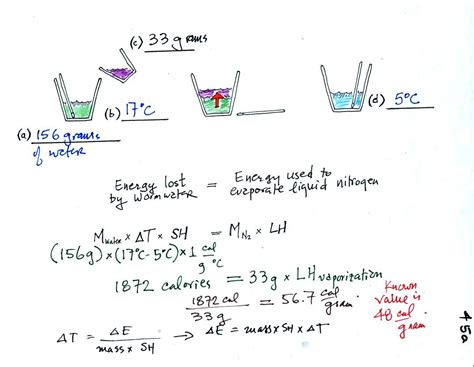 (c) 33 grams
(b) 17°C
(d) 5°C
(a) 156 grams
of water
Energy lost
by warm water
=
Energy used to
evaporate liquid nitrogen
M water × ΔT × SH = M N2 × LH
(156g) × (17°C - 5°C) × 1 cal
g °C
1872 calories = 33g × LH vaporization
1872 cal
33g
= 56.7 cal
gram.
Known
value is
48 cal
gram
ΔT = ΔE
mass × SH
→ ΔE = mass × SH × ΔT
45a